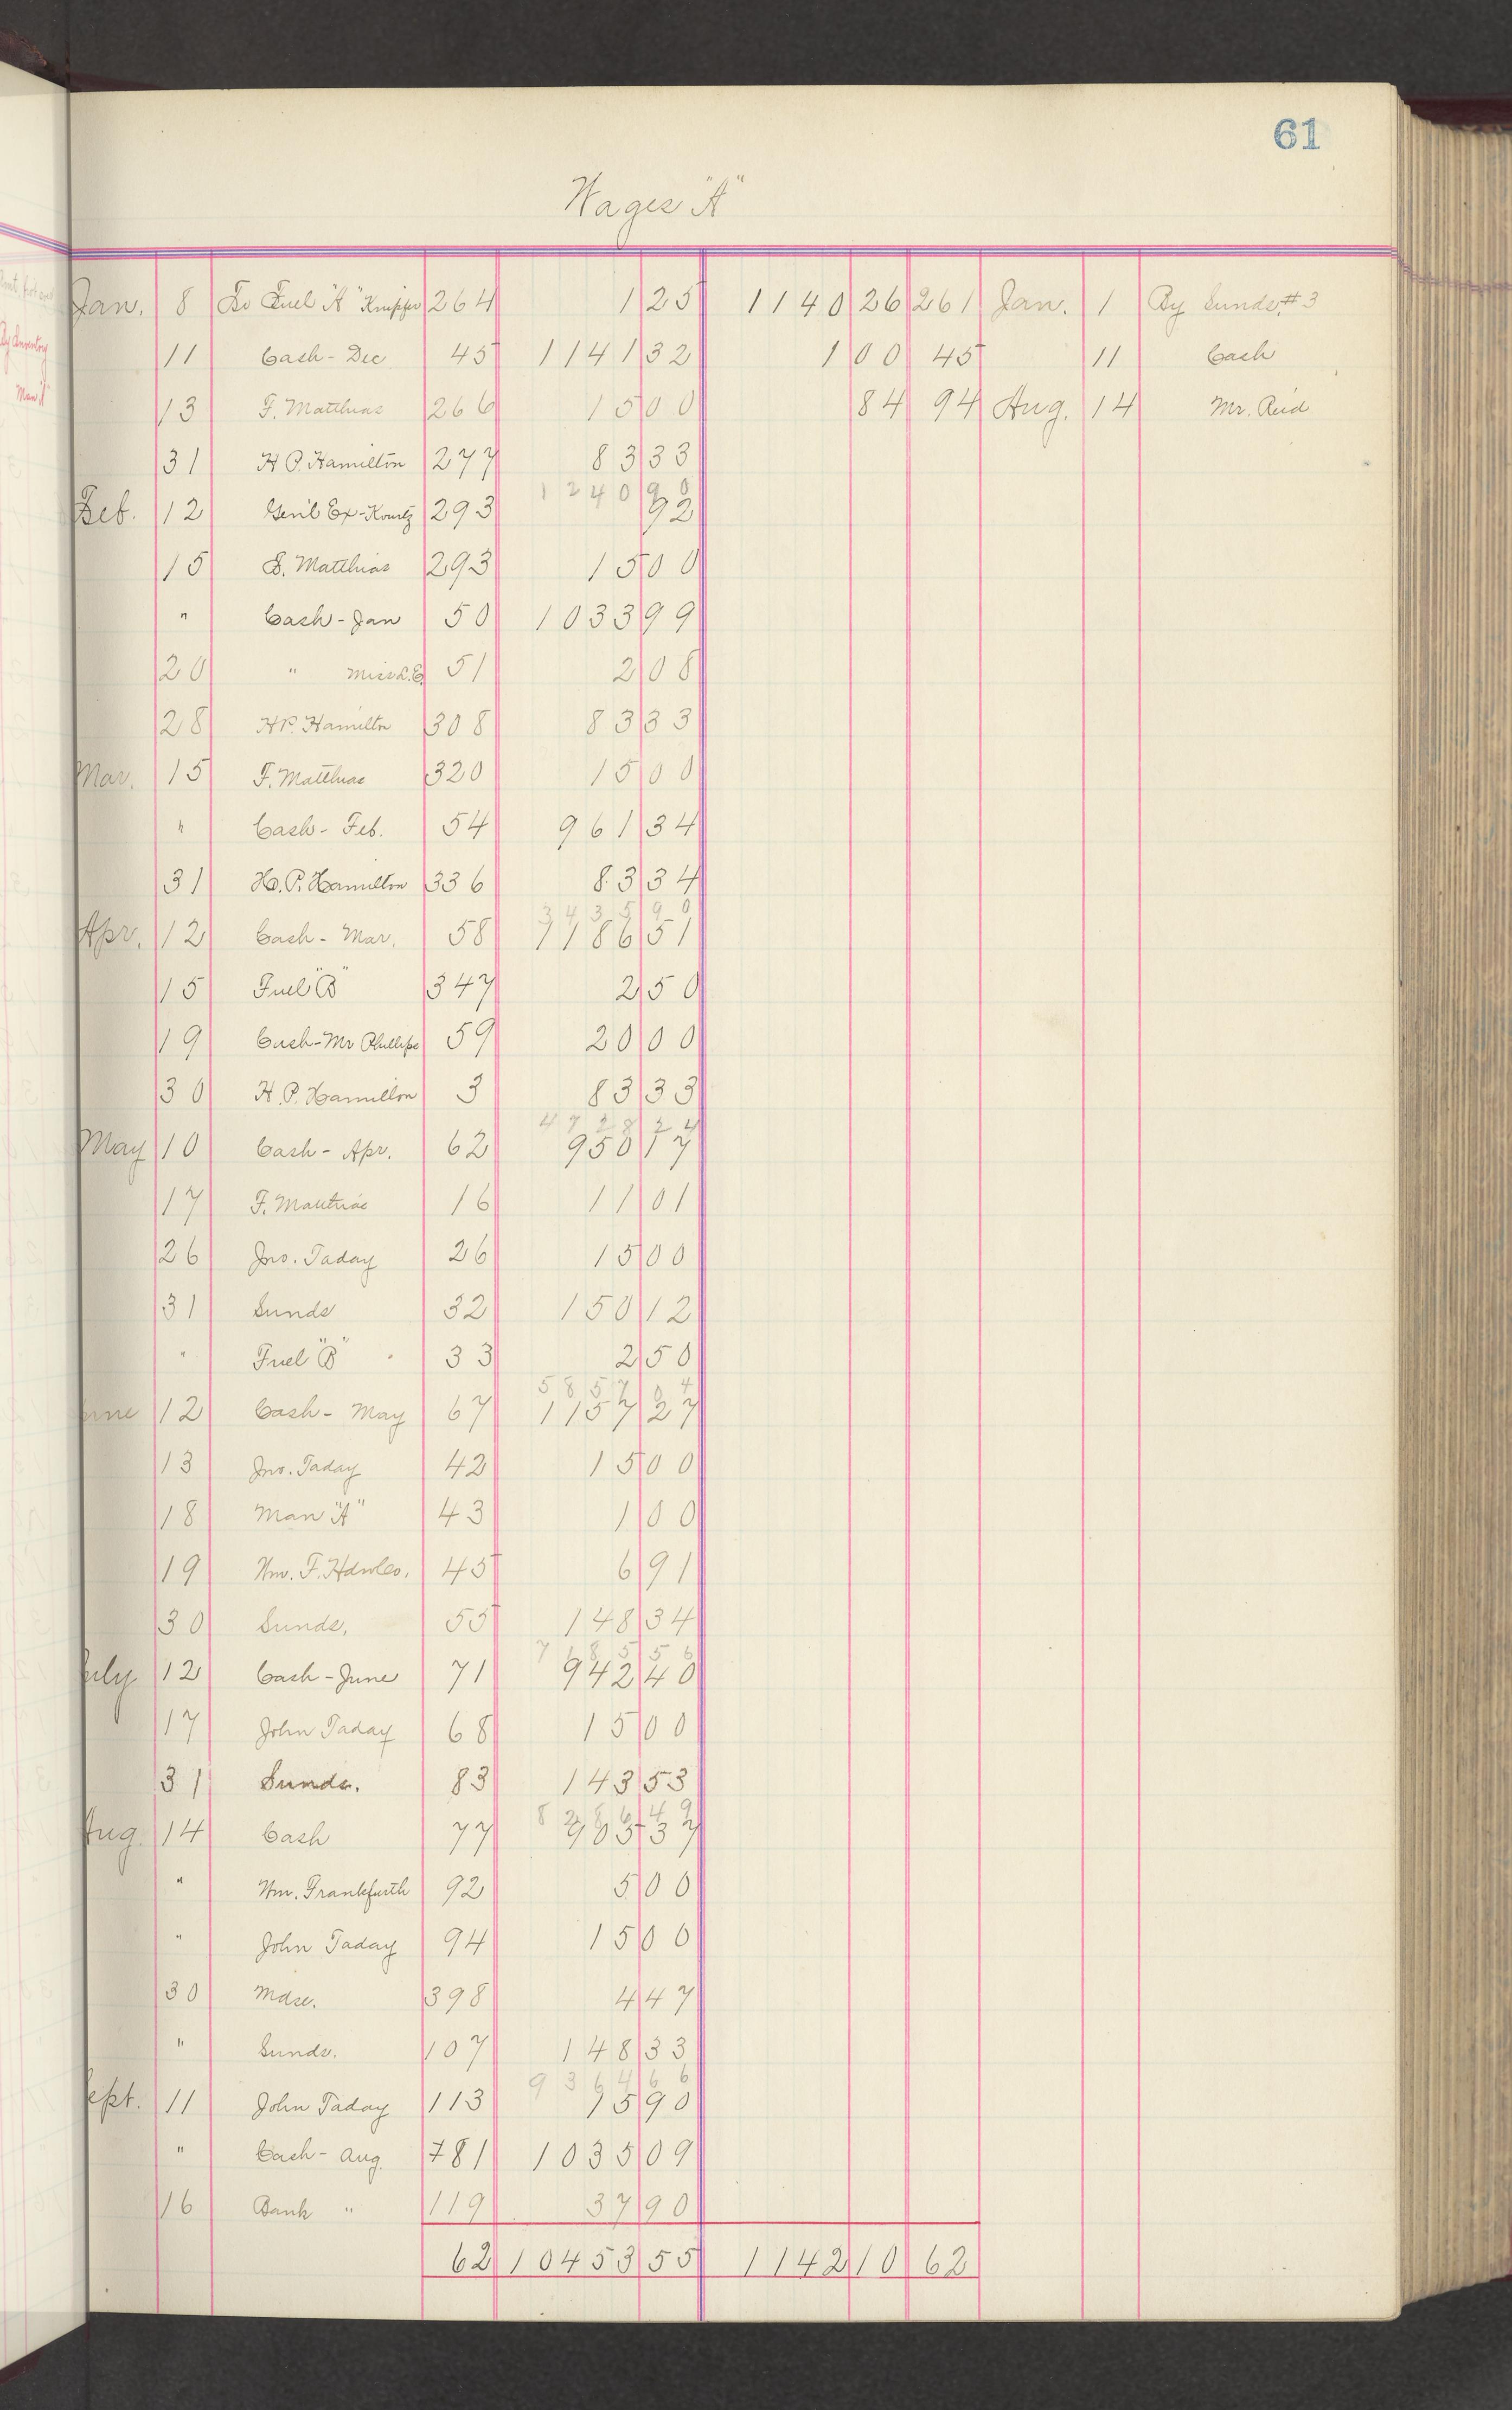 61
Wages "A"
Jan. 8 To Fuel "A" Knipfer 264 1 25 1140 26 261 Jan. 1 By Sunds. #3
11 Cash - Dec 45 1141 32 1 00 45 11 Cash
13 F. Matthias 266 15 00 84 94 Aug. 14 Mr. Reid
31 H P. Hamilton 277 83 33
1240 90
Feb. 12 Gen'l Ex - Kountz 293 92
15 F. Matthias 293 15 00
" Cash - Jan 50 1033 99
20 " Miss L.E. 51 2 08
28 H P. Hamilton 308 83 33
Mar. 15 F. Matthias 320 15 00
" Cash - Feb. 54 961 34
31 H. P. Hamilton 336 83 34
3435 90
Apr. 12 Cash - Mar. 58 1186 51
15 Fuel "B" 347 2 50
19 Cash - Mr Phillips 59 20 00
30 H. P. Hamilton 3 83 33
4728 24
May 10 Cash - Apr. 62 950 17
17 F. Matthias 16 11 01
26 Jno. Taday 26 15 00
31 Sunds 32 150 12
" Fuel "B" 33 2 50
5857 04
June 12 Cash - May 67 1157 27
13 Jno. Taday 42 15 00
18 Man "A" 43 1 00
19 Wm. F. 45 6 91
30 Sunds. 55 148 34
7185 56
July 12 Cash - June 71 942 40
17 John Taday 68 15 00
31 Sunds. 83 143 53
8286 49
Aug. 14 Cash 77 905 37
" Wm. Frankfurth 92 5 00
" John Taday 94 15 00
30 Mdse. 398 4 47
" Sunds. 107 148 33
9364 66
Sept. 11 John Taday 113 15 90
" Cash - Aug. 781 1035 09
16 Bank " 119 37 90
62 10453 55 1142 10 62
By Inventory
Man "A"